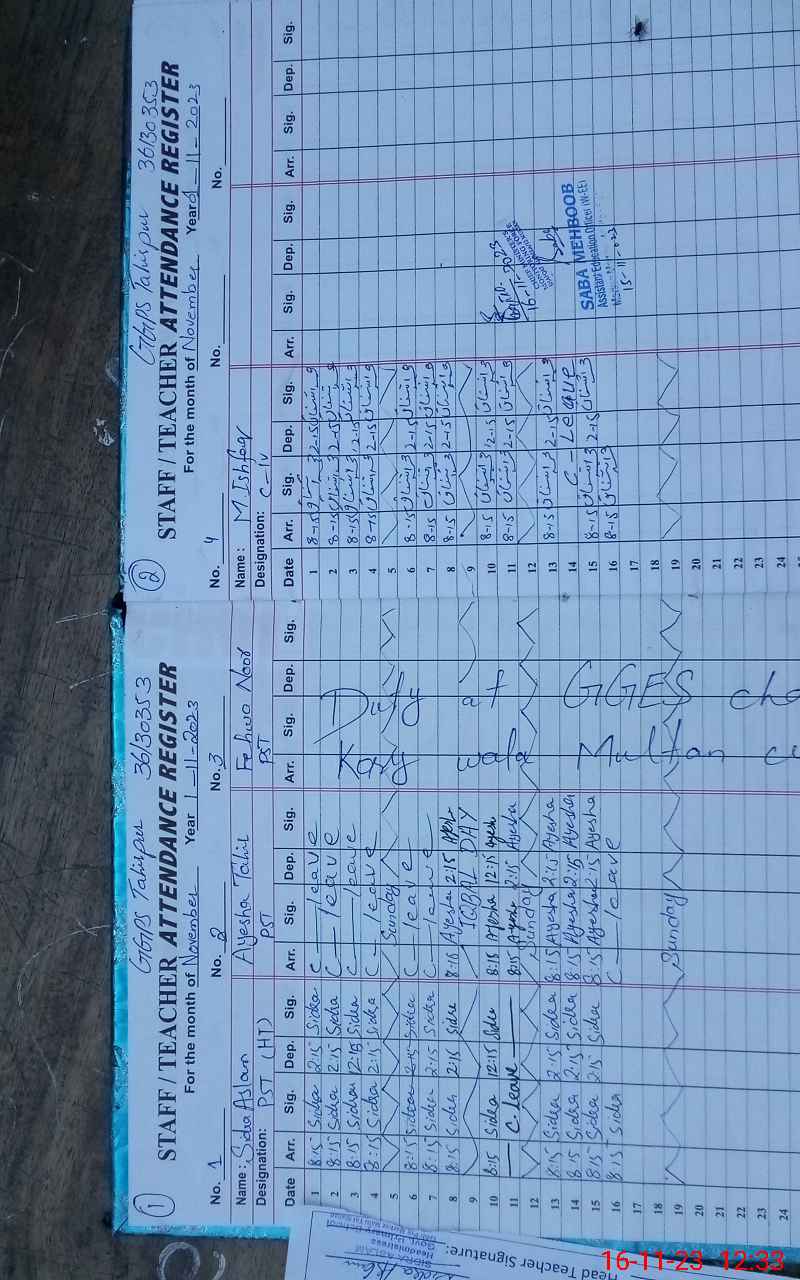 ① GGPS Tahirpur 36130353
STAFF / TEACHER ATTENDANCE REGISTER
For the month of November Year 1-11-2023
No. 1 No. 2 No. 3
Name: Sidra Aslam Ayesha Tahir Noor
Designation: PST (HT) PST PST
Date Arr. Sig. Dep. Sig. Arr. Sig. Dep. Sig. Arr. Sig. Dep. Sig.
1 8:15 Sidra 2:15 Sidra C leave
2 8:15 Sidra 2:15 Sidra C leave Duty at GGES
3 8:15 Sidra 12:15 Sidra C leave
4 8:15 Sidra 2:15 Sidra C leave Kary wala Multan
5 Sunday
6 8:15 Sidra 2:15 Sidra C leave
7 8:15 Sidra 2:15 Sidra C leave
8 8:15 Sidra 2:15 Sidra 8:15 Ayesha 2:15 Ayesha
9 IQBAL DAY
10 8:15 Sidra 12:15 Sidra 8:15 Ayesha 12:15 Ayesha
11 C leave 8:15 Ayesha 2:15 Ayesha
12 Sunday
13 8:15 Sidra 2:15 Sidra 8:15 Ayesha 2:15 Ayesha
14 8:15 Sidra 2:15 Sidra 8:15 Ayesha 2:15 Ayesha
15 8:15 Sidra 2:15 Sidra 8:15 Ayesha 2:15 Ayesha
16 8:15 Sidra C leave
17
18
19 Sunday
20
21
22
23
24
② GGPS Tahirpur 36130353
STAFF / TEACHER ATTENDANCE REGISTER
For the month of November Year 1-11-2023
No. 4 No. No.
Name: M Ishfaq
Designation: C-iv
Date Arr. Sig. Dep. Sig. Arr. Sig. Dep. Sig. Arr. Sig. Dep. Sig.
1 8-15 اشتاق 2-15 اشتاق
2 8-15 اشتاق 2-15 اشتاق
3 8-15 اشتاق 12-15 اشتاق
4 8-15 اشتاق 2-15 اشتاق
5
6 8-15 اشتاق 2-15 اشتاق
7 8-15 اشتاق 2-15 اشتاق
8 8-15 اشتاق 2-15 اشتاق
9
10 8-15 اشتاق 12-15 اشتاق
11 8-15 اشتاق 2-15 اشتاق
12
13 8-15 اشتاق 2-15 اشتاق
14 C - Leave
15 8-15 اشتاق 2-15 اشتاق
16 8-15 اشتاق
17
18
19
20
21
22
23
24
16-11-2023
SABA MEHBOOB
Assistant Education Officer (W-EE)
15-11-023
SIDRA ASLAM
Headmistress
Head Teacher Signature:
16-11-23 12:33